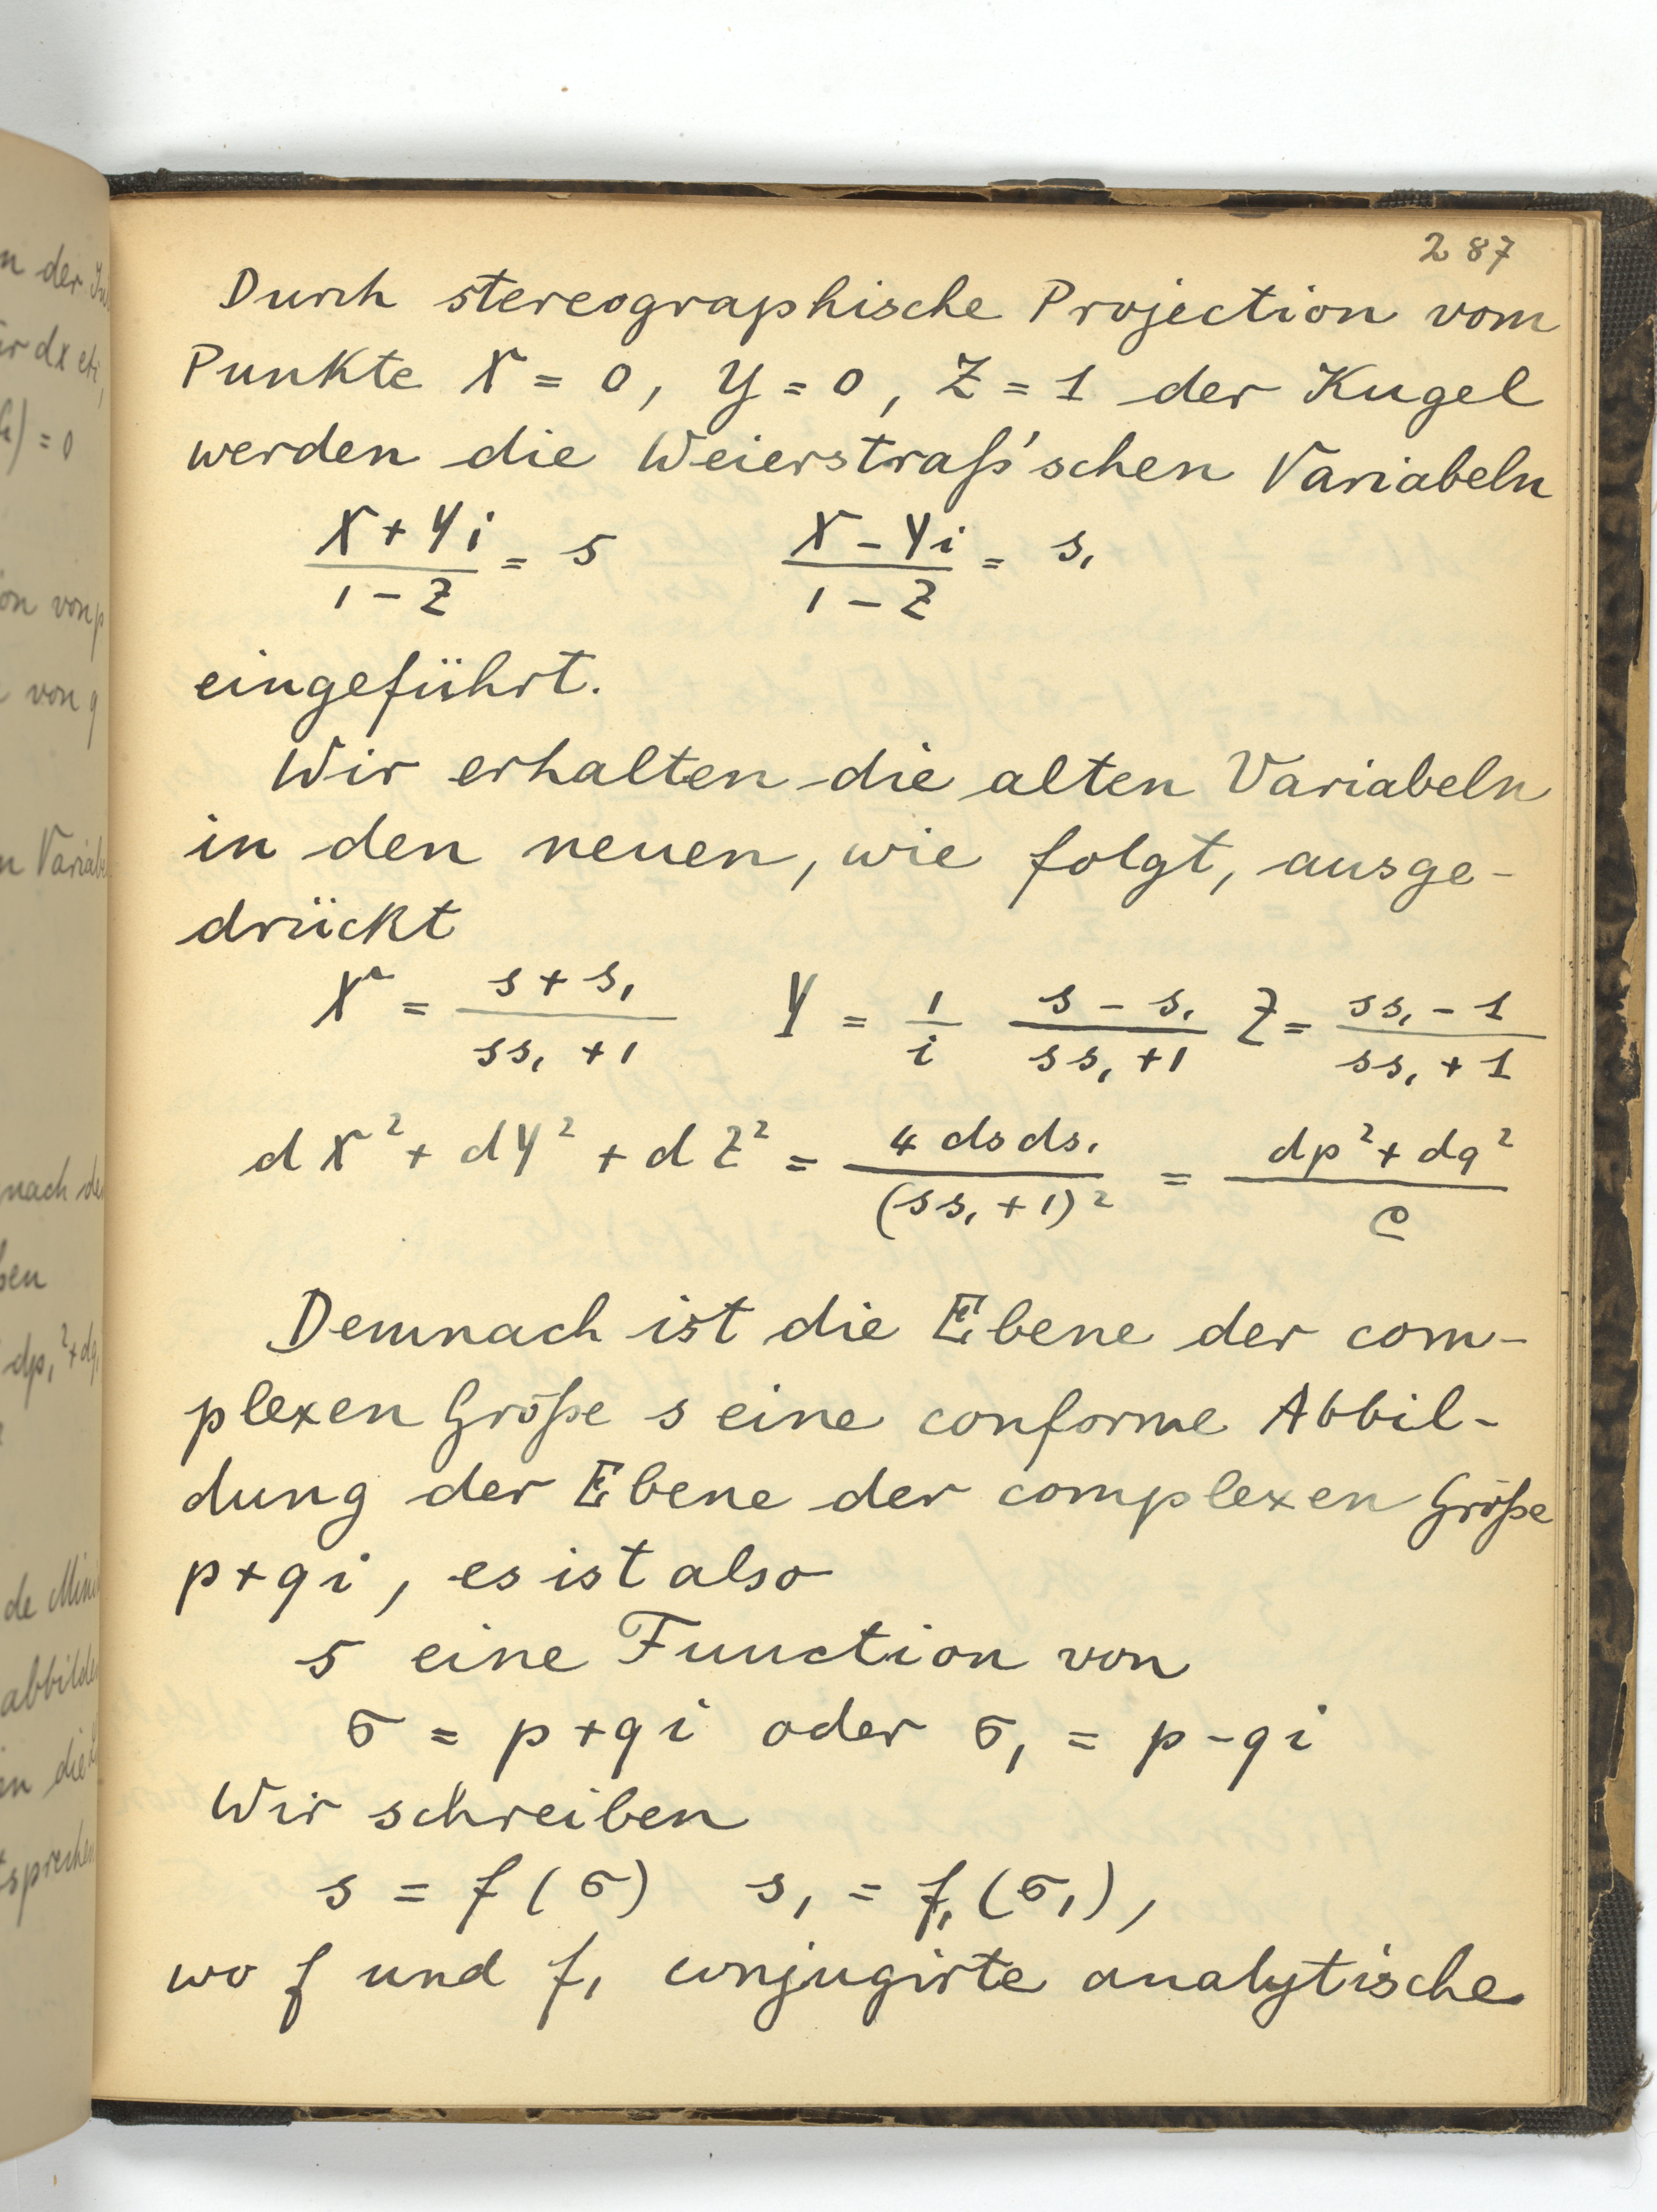 287
Durch stereographische Projection vom
Punkte X = 0, Y = 0, Z = 1 der Kugel
werden die Weierstraß'schen Variabeln
(X + Yi)/(1 - Z) = s (X - Yi)/(1 - Z) = s₁
eingeführt.
Wir erhalten die alten Variabeln
in den neuen, wie folgt, ausge-
drückt
X = (s + s₁)/(ss₁ + 1) Y = 1/i (s - s₁)/(ss₁ + 1) Z = (ss₁ - 1)/(ss₁ + 1)
dX² + dY² + dZ² = (4 ds ds₁)/(ss₁ + 1)² = (dp² + dq²)/ϱ
Demnach ist die Ebene der com-
plexen Größe s eine conforme Abbil-
dung der Ebene der complexen Größe
p + qi, es ist also
s eine Function von
σ = p + qi oder σ₁ = p - qi
Wir schreiben
s = f(σ) s₁ = f₁(σ₁),
wo f und f₁ conjugirte analytische